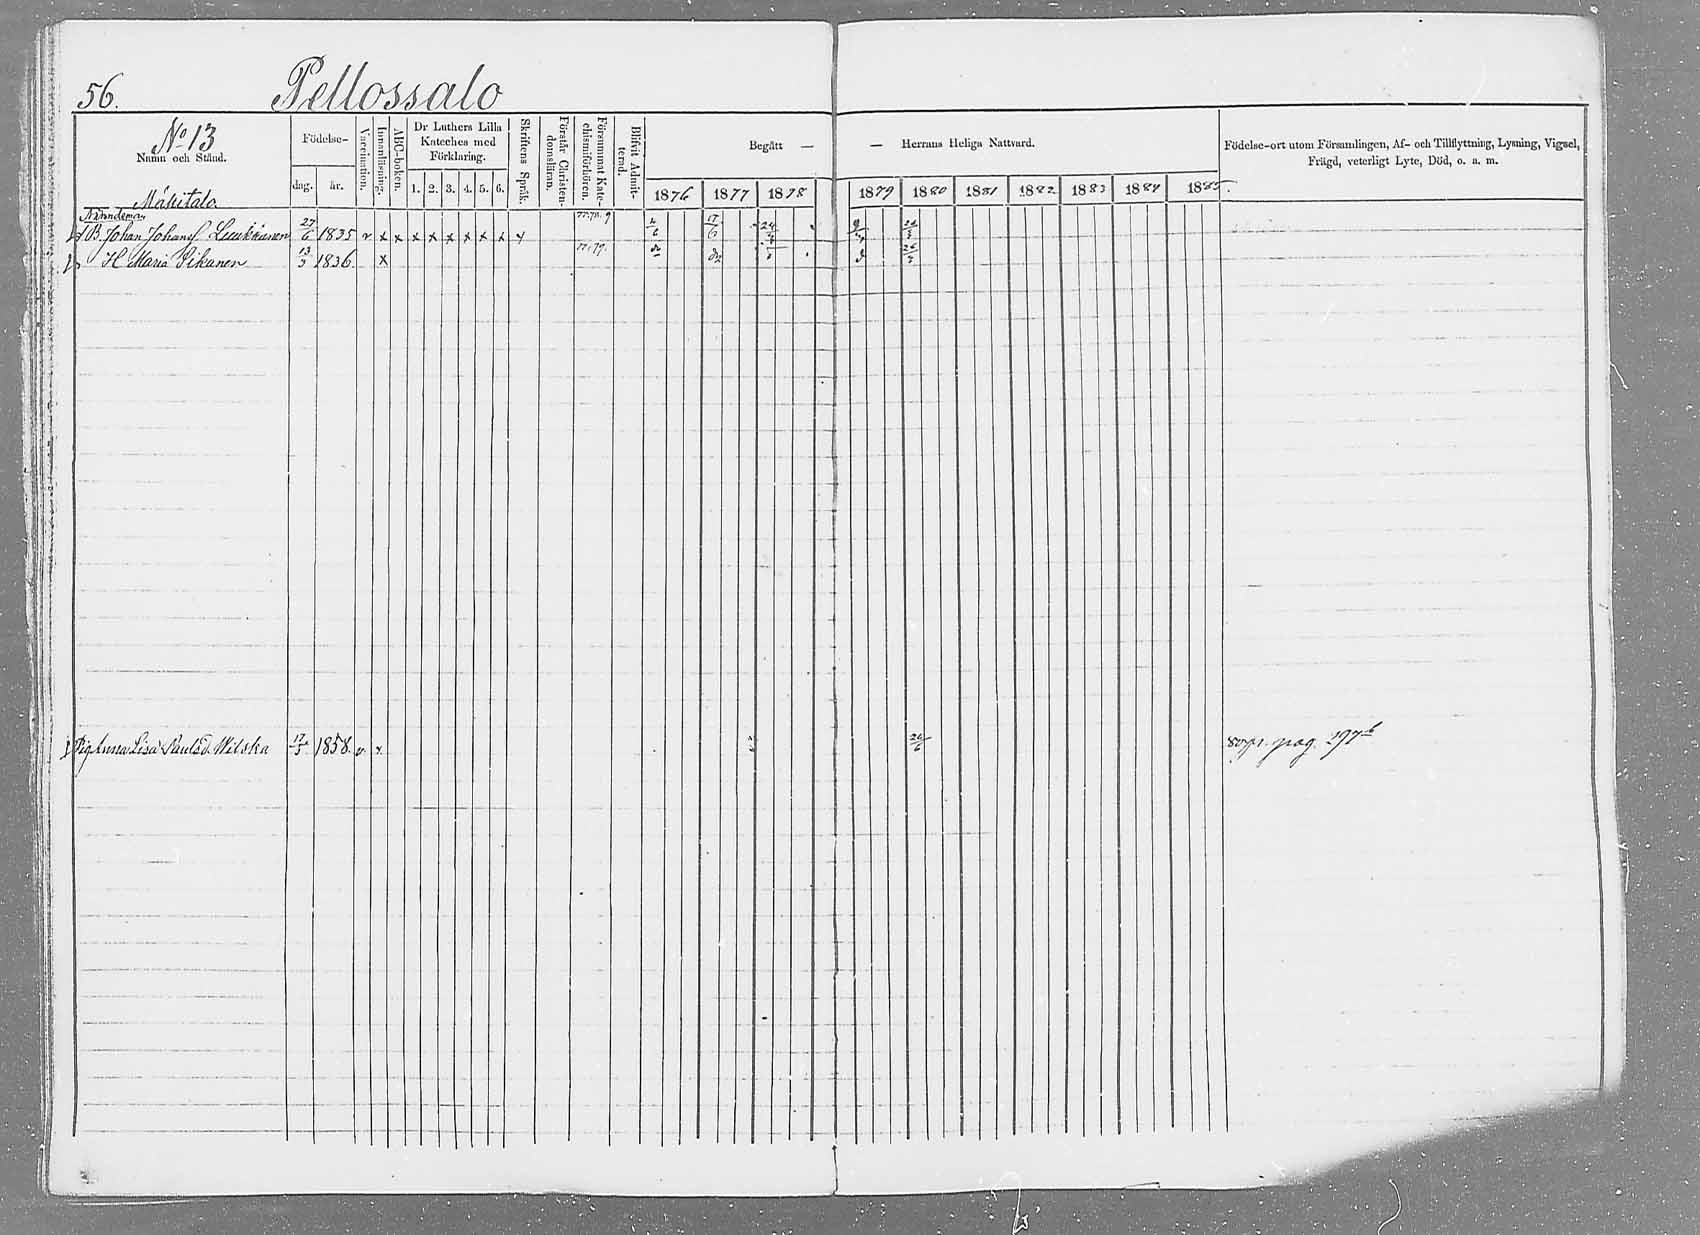 56. Pellossalo
No 13
Namn och Stånd.
Mäkitalo
Födelse-
dag. år.
Vaccination.
Innanläsning.
ABC-boken.
Dr Luthers Lilla
Kateches med
Förklaring.
1. 2. 3. 4. 5. 6.
Skriftens Språk.
Förstår Christen-
domsläran.
Försummat Kate-
chismiförhören.
Blifvit Admit-
terad.
Begått —
— Herrans Heliga Nattvard.
1876 1877 1878 1879 1880 1881 1882 1883 1884 1885.
Födelse-ort utom Församlingen, Af- och Tillflyttning, Lysning, Vigsel,
Frägd, veterligt Lyte, Död, o. a. m.
Nämndeman
B. Johan Johansf Luukkainen 27/6 1835 v x x x x x x x x x 4/6 17/6 24/4
H Maria Sikanen 13/3 1836 x 77.79.
Pig Anna Lisa Paulsd. Wilska 17/3 1858 v. x. 26/6 pag. 197